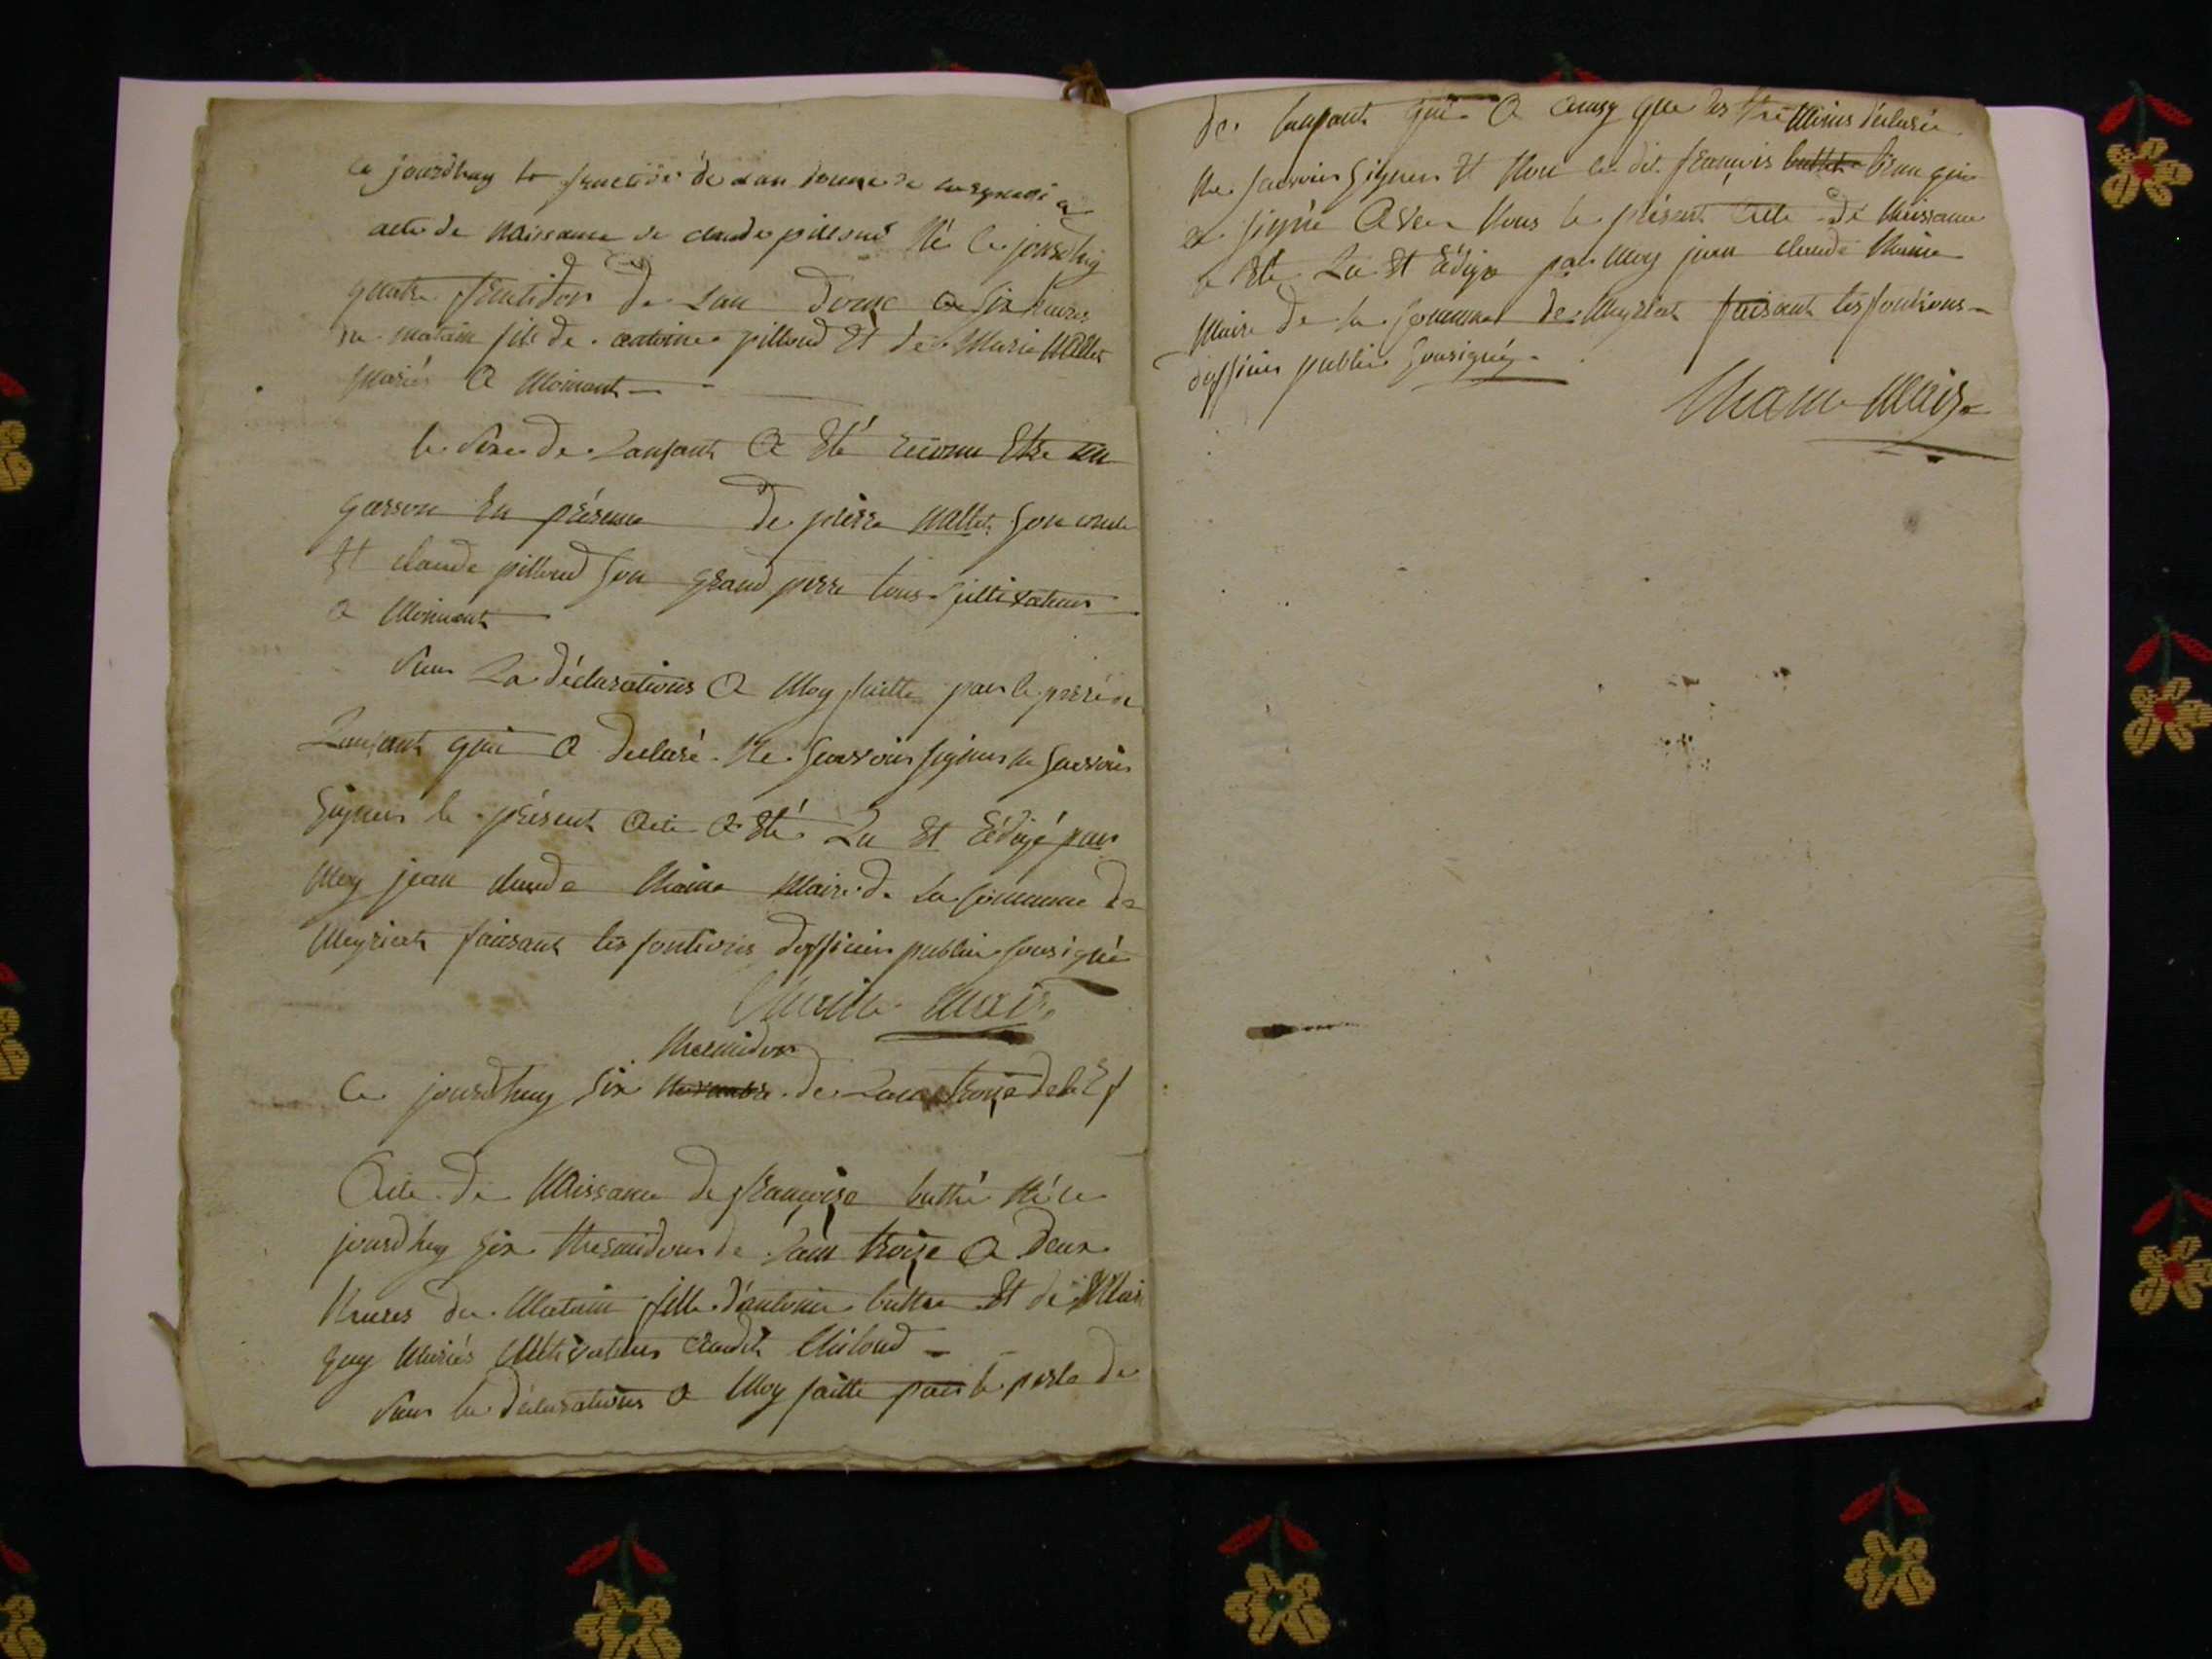 ce jourdhuy fructidor de lan douze de la
acte de Naissance de claude pilloud Né ce jourdhuy
quatre fructidor de Lan douze a six heures
du matain fils de antoine pilloud Et de Marie Mallet
mariés a Moinant
le sexe de Lanfant a Eté reconu Etre un
garson En présence de pierre mallet son oncle
Et claude pilloud son grand perre tous cultivateurs
a Moinant
sur La déclarations a Moy faitte par le perre de
Lanfant qui a declaré Ne scavoir signer Ne scavoir
signer le présent acte a Eté Lu Et Rédigé par
Moy jean claude Maire de La commune de
Meyriat faisant les fontions dofficier public sousigné
Maire
thermidor
Ce jourdhuy six de Lan troize de la R f
Acte de Naissance de françoise Né ce
jourdhuy six thermidor de Lan troize a deux
heures du Matain fille dantoine Et de
guy Mariés Cultivateurs
sur la déclarations a Moy faitte par le perre de
de lanfant qui a ainsy que les témoins déclaré
Ne scavoir signer Et Non le dit françois qui
a signé avec Nous le présent acte de Naissance
a Eté Lu Et Rédigé par Moy jean claude
Maire de la commune de Meyriat faisant les fontions
dofficier public sousigné
Maire